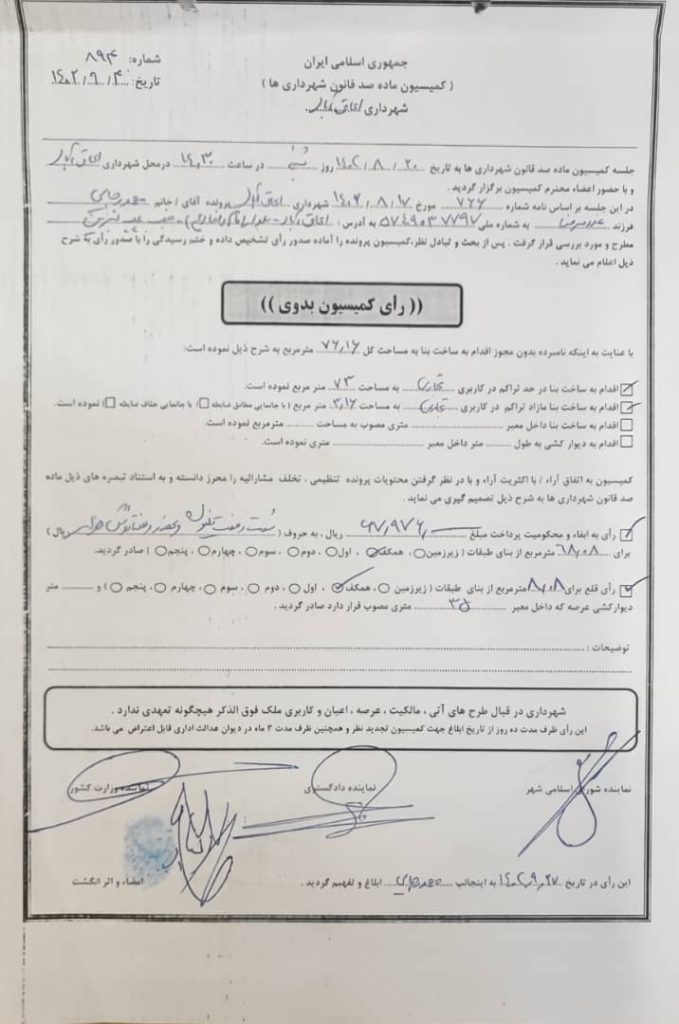 جمهوری اسلامی ایران
( کمیسیون ماده صد قانون شهرداری ها )
شهرداری
شماره: ۸۹۴
تاریخ: ۱۴۰۲/۹/۴
جلسه کمیسیون ماده صد قانون شهرداری ها به تاریخ ۱۴۰۲/۸/۲۰ روز شنبه در ساعت ۱۴:۳۰ درمحل شهرداری
و با حضور اعضاء محترم کمیسیون برگزار گردید .
در این جلسه بر اساس نامه شماره ۷۶۶ مورخ ۱۴۰۲/۸/۱۷ شهرداری پرونده آقای / خانم
فرزند به شماره ملی ۵۷۴۹۰۳۷۷۹۷ به آدرس :
مطرح و مورد بررسی قرار گرفت . پس از بحث و تبادل نظر،کمیسیون پرونده را آماده صدور رأی تشخیص داده و ختم رسیدگی را با صدور رأی به شرح
ذیل اعلام می نماید .
(( رای کمیسیون بدوی ))
با عنایت به اینکه نامبرده بدون مجوز اقدام به ساخت بنا به مساحت کل ۷۶,۱۶ مترمربع به شرح ذیل نموده است:
اقدام به ساخت بنا در حد تراکم در کاربری تجاری به مساحت ۷۳ متر مربع نموده است.
اقدام به ساخت بنا مازاد تراکم در کاربری تجاری به مساحت ۳,۱۶ متر مربع ( با جانمایی مطابق ضابطه / با جانمایی خلاف ضابطه ) نموده است.
اقدام به ساخت بنا داخل معبر متری مصوب به مساحت مترمربع نموده است.
اقدام به دیوار کشی به طول متر داخل معبر متری نموده است.
کمیسیون به اتفاق آراء / با اکثریت آراء و با در نظر گرفتن محتویات پرونده تنظیمی ، تخلف مشارالیه را محرز دانسته و به استناد تبصره های ذیل ماده
صد قانون شهرداری ها به شرح ذیل تصمیم گیری می نماید .
رأی به ابقاء و محکومیت پرداخت مبلغ ریال ، به حروف ( ریال )
برای ۶۸,۰۸ مترمربع از بنای طبقات ( زیرزمین ، همکف ، اول ، دوم ، سوم ، چهارم ، پنجم ) صادر گردید.
رأی قلع برای ۸,۰۸ مترمربع از بنای طبقات ( زیرزمین ، همکف ، اول ، دوم ، سوم ، چهارم ، پنجم ) و متر
دیوارکشی عرصه که داخل معبر ۳۵ متری مصوب قرار دارد صادر گردید .
توضیحات :
شهرداری در قبال طرح های آتی ، مالکیت ، عرصه ، اعیان و کاربری ملک فوق الذکر هیچگونه تعهدی ندارد .
این رأی ظرف مدت ده روز از تاریخ ابلاغ جهت کمیسیون تجدید نظر و همچنین ظرف مدت ۳ ماه در دیوان عدالت اداری قابل اعتراض می باشد.
نماینده شورای اسلامی شهر
نماینده دادگستری
نماینده وزارت کشور
این رأی در تاریخ ۱۴۰۲,۹,۲۷ به اینجانب ابلاغ و تفهیم گردید .
امضاء و اثر انگشت